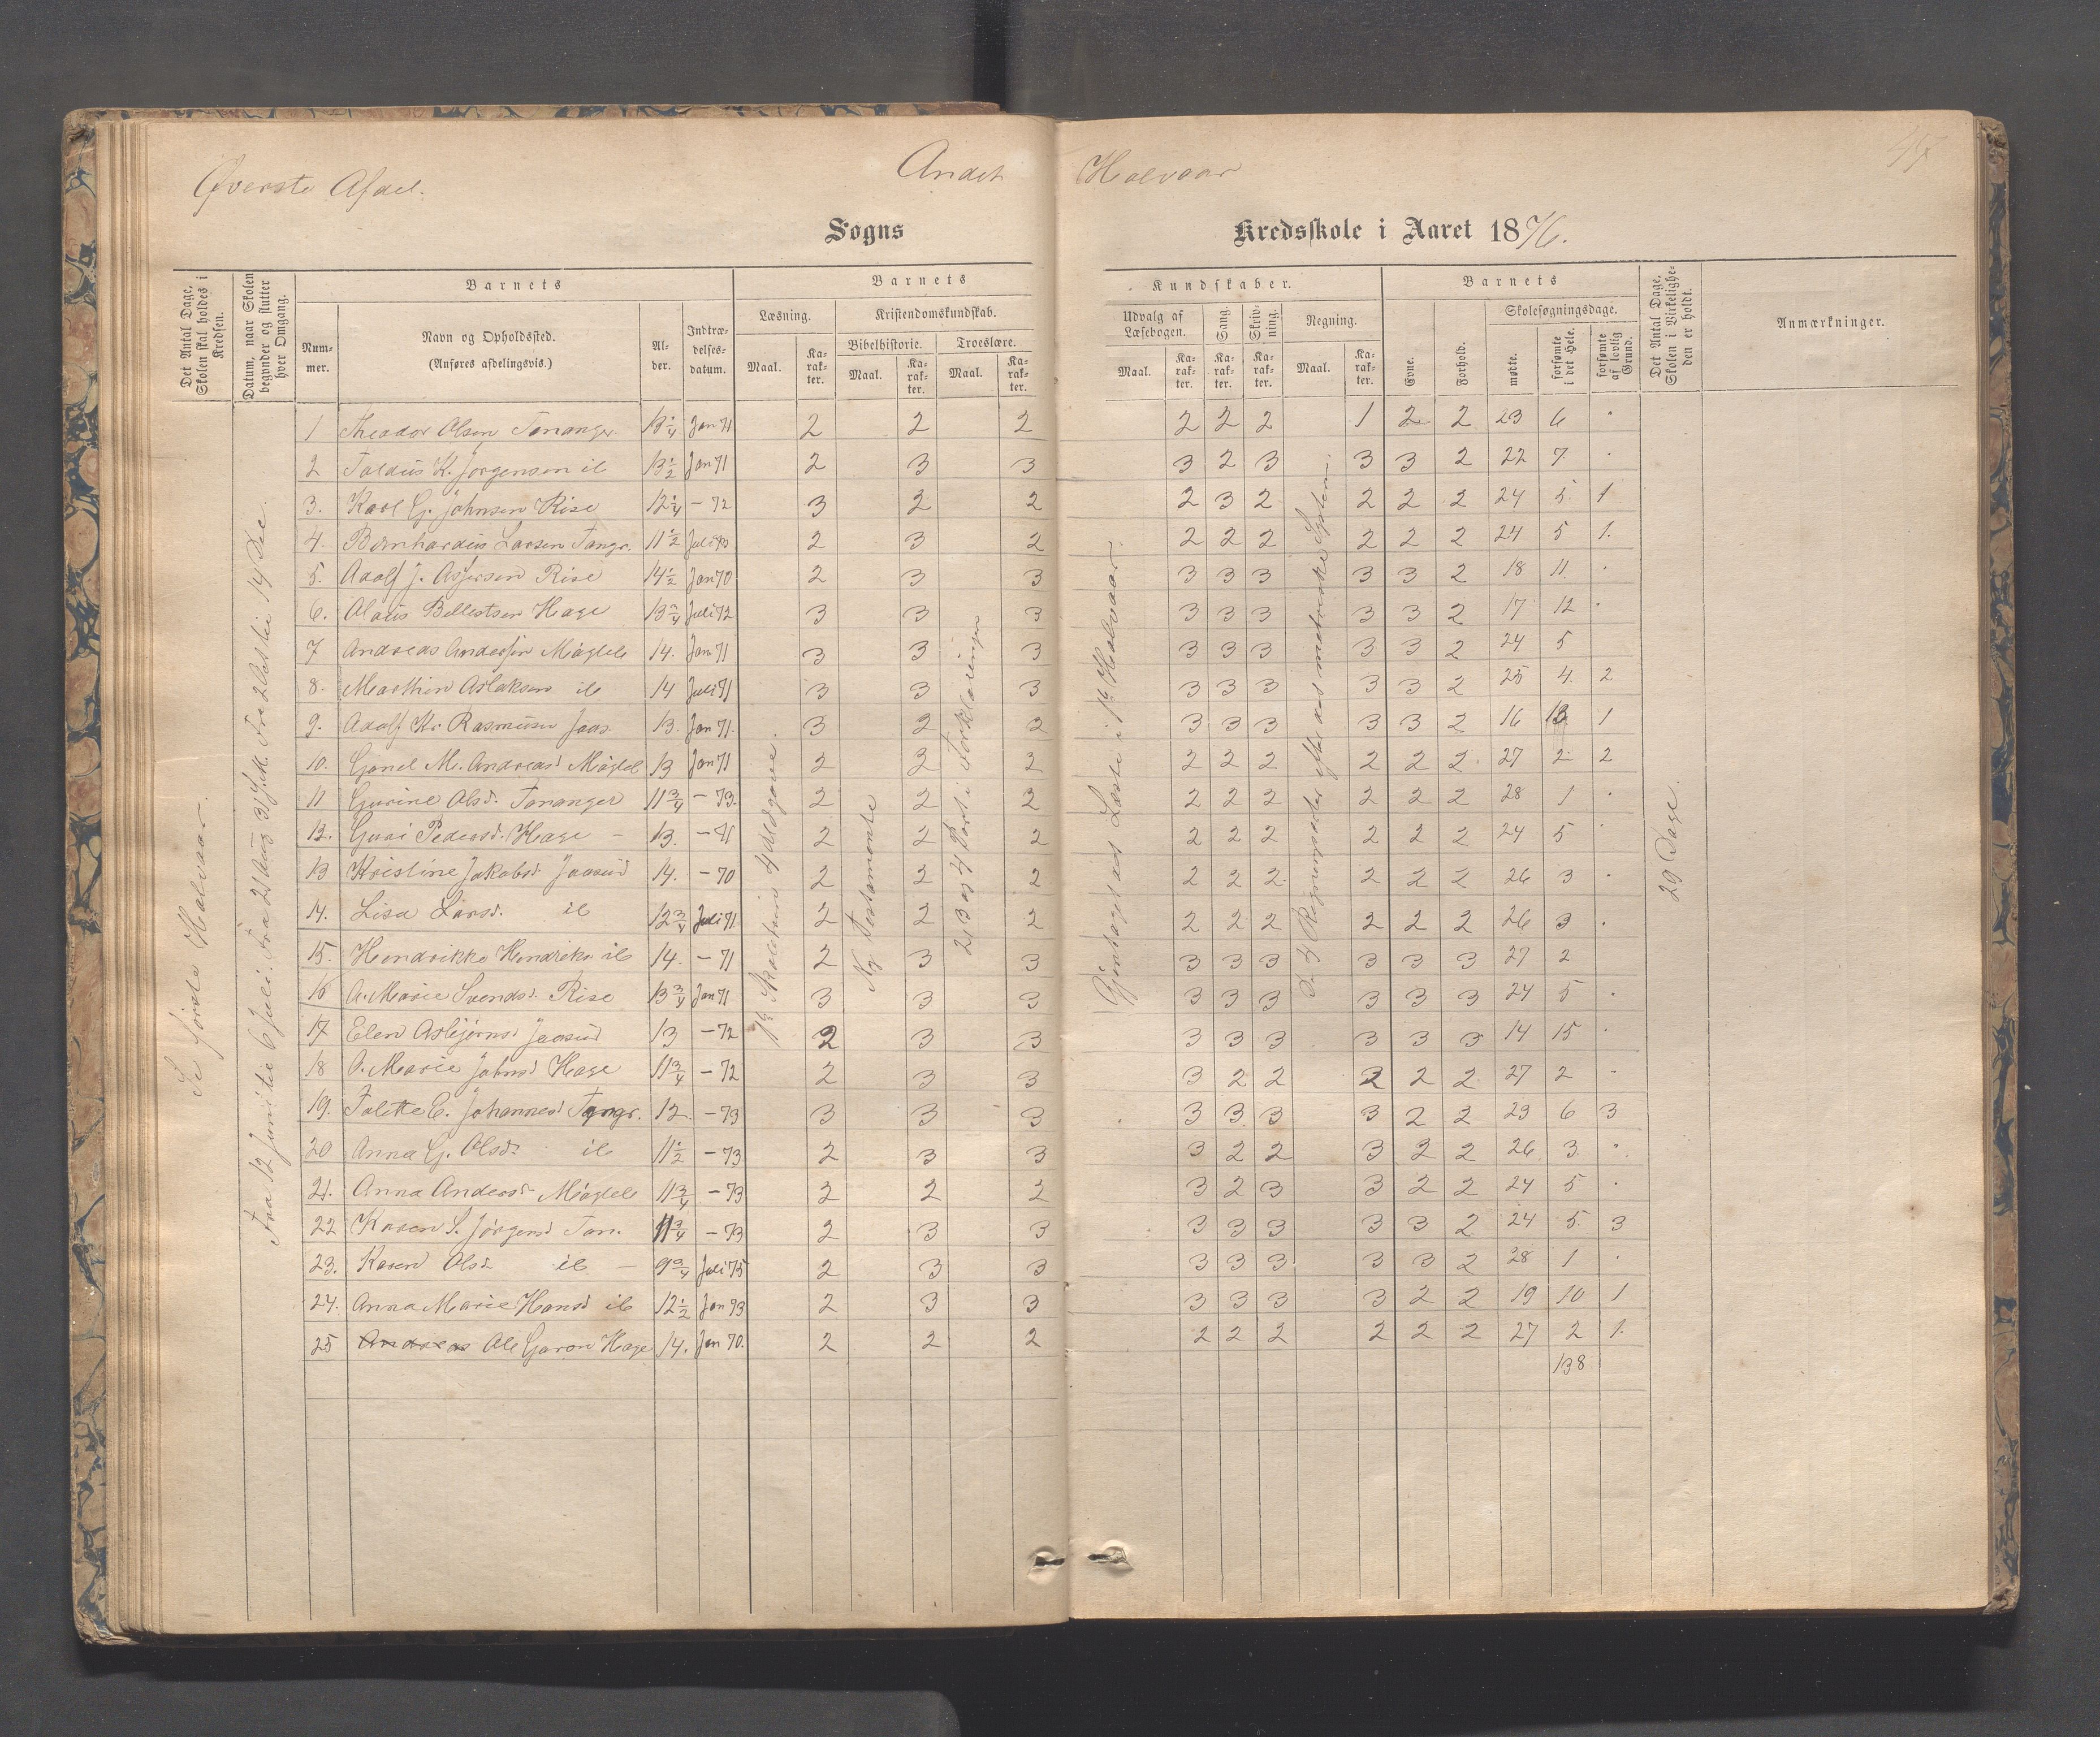 Øverste Afdel.
Andet Halvaar
Sogns Kredsskole i Aaret 1876.
Det Antal Dage, Skolen skal holdes i Kredsen.
Datum, naar Skolen begynder og slutter hver Omgang.
Barnets
Nummer.
Navn og Opholdssted.
(Anføres afdelingsvis.)
Alder.
Indtrædelsesdatum.
Barnets Kundskaber.
Læsning.
Kristendomskundskab.
Bibelhistorie.
Troeslære.
Udvalg af Læsebogen.
Sang.
Skrivning.
Regning.
Maal. Karakter. Maal. Karakter. Maal. Karakter. Maal. Karakter. Karakter. Karakter. Maal. Karakter.
Barnets
Evne.
Forhold.
Skolesøgningsdage.
mødte.
forsømte i det Hele.
forsømte af lovlig Grund.
Det Antal Dage, Skolen i Virkeligheden er holdt.
Anmærkninger.
Se første Halvaar.
Fra 12 Juni til 6 Juli. Fra 21 Aug
14 Dec.
Ny Testamente
2, 3 og 4 Part i Forklaringen
Gjentaget det Læste i 1ste Halvaar.
29 Dage.
1 Theodor Olsen Tananger 13 1/4 Jan 71 2 2 2 2 2 2 1 2 2 23 6 "
2 Taldus K. Jørgensen ib 13 1/2 Jan 71 2 3 3 3 2 3 3 3 2 22 7 "
3. Karl G. Johnsen Risa 12 1/4 - 72 3 2 2 2 3 2 2 2 2 24 5 1
4. Bernhardus Larsen Tangr. 11 1/2 Juli 73 2 3 2 2 2 2 2 2 2 24 5 1.
5. Adolf J. Asgersen Rise 14 1/2 Jan 70 2 3 3 3 3 3 3 3 2 18 11 "
6. Olaus Bellestsen Hage 13 3/4 Juli 72 3 3 3 3 3 3 3 3 2 17 12 "
7 Andreas Andersen Møgleb 14. Jan 71 3 3 3 3 3 3 3 3 2 24 5
8. Marthin Aslaksen ib 14 Juli 71 3 3 3 3 3 3 3 3 2 25 4 2
9. Adolf Kr Rasmusen Jaas. 13. Jan 71. 3 2 2 3 3 3 3 3 2 16 13 1
10. Gunel M. Andreasd Møgleb 13 Jan 71 2 2 2 2 2 2 2 2 2 27 2 2
11 Gurine Olsd. Tananger 11 3/4 - 73. 2 2 2 2 2 2 2 2 2 28 1 "
12. Guri Pedersd. Hage - 13. - 71 2 2 2 2 2 2 2 2 2 24 5 "
13 Kristine Jakobsd Jaasund 14. - 70 2 2 2 2 2 2 2 2 2 26 3 "
14. Lisa Larsd. ib 12 3/4 Juli 71 2 2 2 2 2 2 2 2 2 26 3 .
15. Hendrikke Hendriks ib 14. - 71 2 3 3 3 3 3 3 3 3 27 2
16 A. Marie Svends. Rise 13 3/4 Jan 71 3 3 3 3 3 3 3 3 3 24 5 "
17 Elen Asbjørnsd Jaasund 13 - 72 2 3 3 3 3 3 3 3 3 14 15 "
18 O. Marie Johnsd Hage 11 3/4 - 72 2 3 3 3 2 2 2 2 2 27 2 "
19. Talette E. Johannesd Tangr. 12. - 73 3 3 3 3 3 3 3 2 2 23 6 3
20 Anna G. Olsd. ib 11 1/2 - 73 2 3 3 3 2 2 3 2 2 26 3 "
21. Anna Andersd Møgleb 11 3/4 - 73 2 2 2 3 2 3 3 2 2 24 5 "
22 Karen S. Jørgensd Tan. 11 3/4 - 73 2 3 3 3 3 3 3 3 2 24 5 3
23. Karen Olsd ib - 9 3/4 Juli 75 2 3 3 3 3 3 3 3 2 28 1 "
24. Anna Marie Hansd ib 12 1/2 Jan 73 2 3 3 3 3 3 3 2 2 19 10 1
25 Andreas Ole Garon Hage 14. Jan 70. 2 2 2 2 2 2 2 2 2 27 2 1.
138